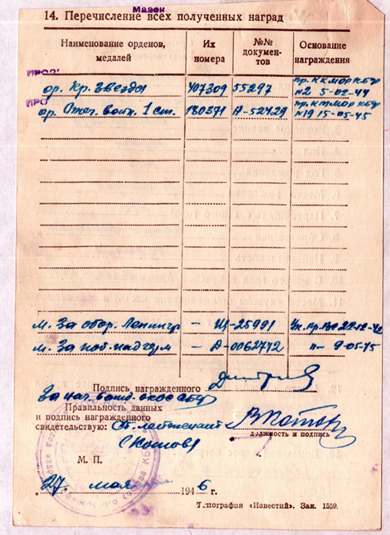 Мазен
14. Перечисление всех полученных наград
Наименование орденов, медалей
Их номера
№№ документов
Основание награждения
ор. Кр. Звезды 407309 55297 пр. ККМОР КБФ
№2 5-02-44
ор. Отеч. войн. 1 ст. 180371 А-52429
№19 15-05-45
м. За обор. Ленингр — Щ-25991 Ук. пр. 22-12-42
м. За поб. над герм — А-0062772 —п— 9-05-45
Подпись награжденного
За нач.
Правильность данных
и подпись награжденного
свидетельствую: Ст. лейтенант
должность и подпись
М. П.
27. мая 1946 г.
Типография «Известий». Зак. 1559.